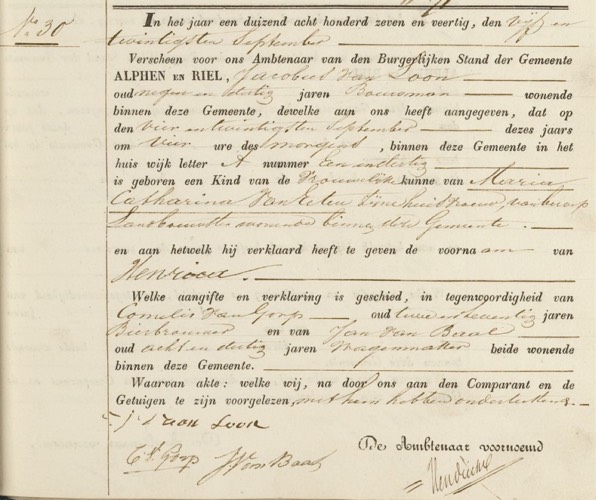 No 30
In het jaar een duizend acht honderd zeven en veertig, den vijf en
twintigsten September
Verscheen voor ons Ambtenaar van den Burgerlijken Stand der Gemeente
ALPHEN EN RIEL, Jacobus Van Loon
oud negen en dertig jaren Bouwman wonende
binnen deze Gemeente, dewelke aan ons heeft aangegeven, dat op
den vier en twintigsten September dezes jaars
om vier ure des morgens, binnen deze Gemeente in het
huis wijk letter A nummer een en dertig
is geboren een Kind van de Vrouwelijke kunne van Maria
Catharina Van Eelen zijne huisvrouw, van beroep
Landbouwster wonende binnen deze Gemeente.
en aan hetwelk hij verklaard heeft te geven de voornaam van
Welke aangifte en verklaring is geschied, in tegenwoordigheid van
Cornelis Van Gorp oud twee en zeventig jaren
Bierbrouwer en van Jan Van Baal
oud acht en dertig jaren Wagenmaker beide wonende
binnen deze Gemeente.
Waarvan akte: welke wij, na door ons aan den Comparant en de
Getuigen te zijn voorgelezen, met hem hebben onderteekend.
J van Loon
De Ambtenaar voornoemd
C V Gorp J Van Baal